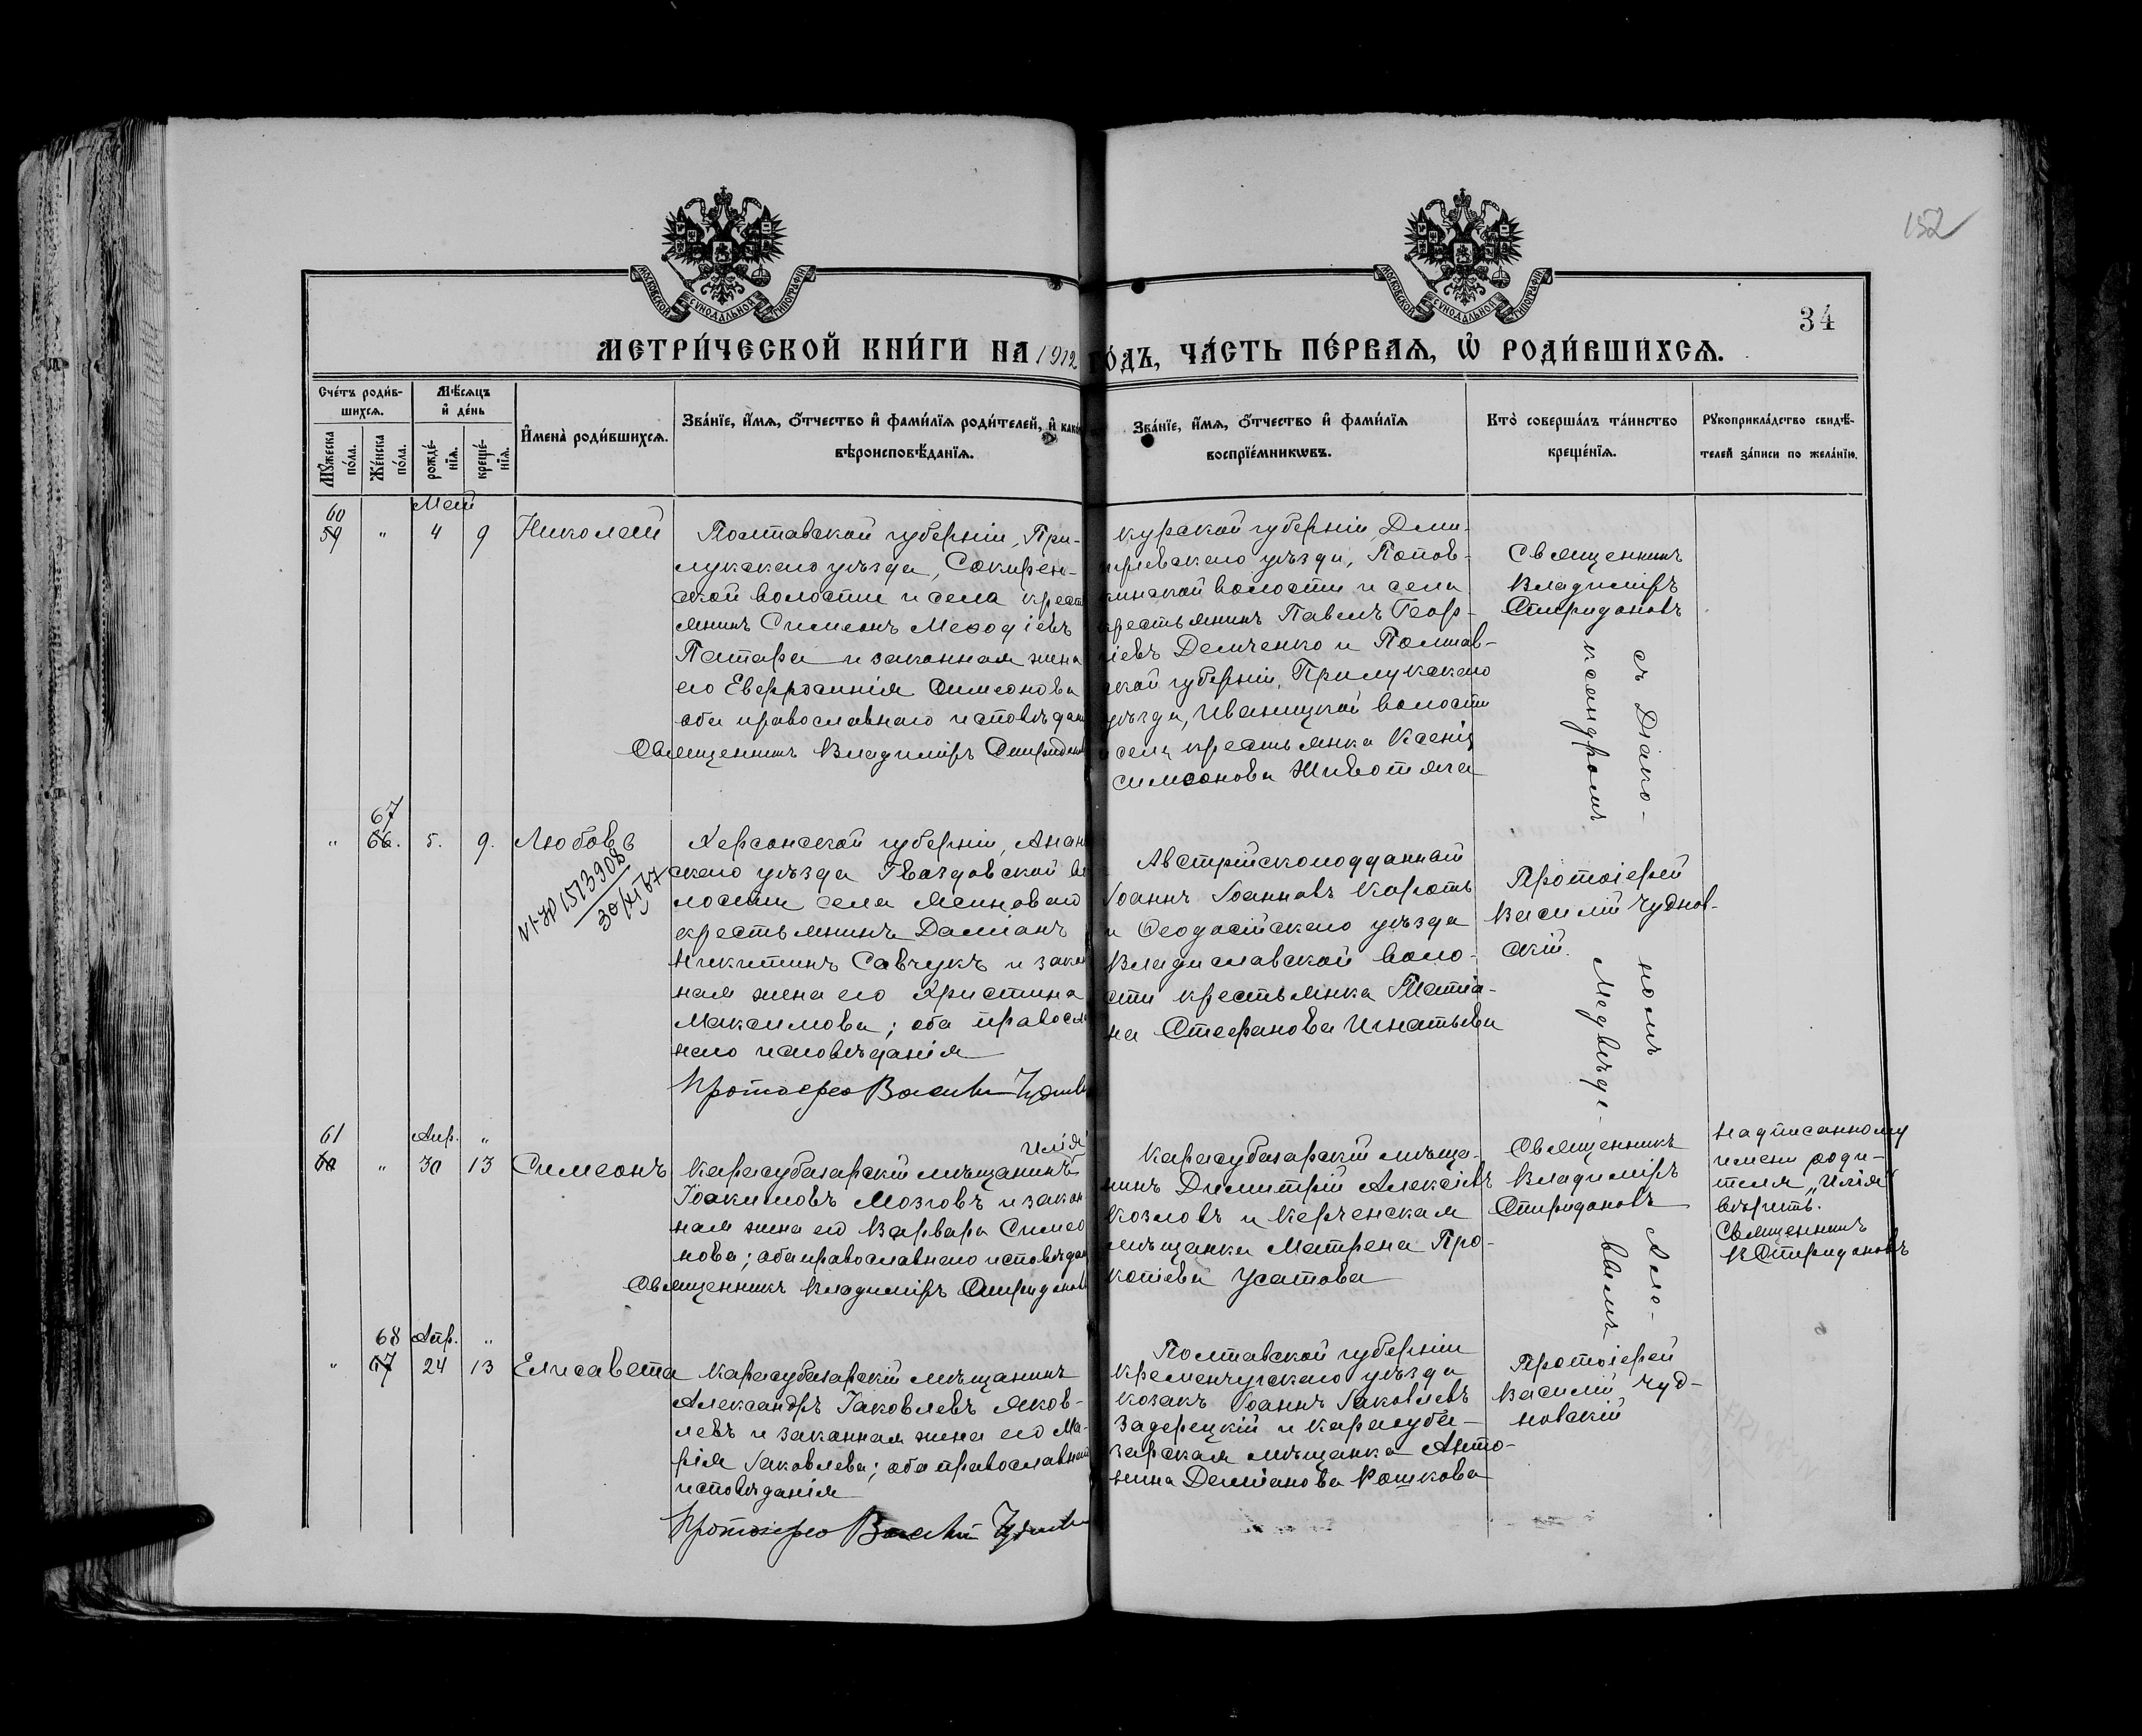 152
МОСКОВСКОЙ СѴНОДАЛЬНОЙ ТИПОГРАФІИ
МОСКОВСКОЙ СѴНОДАЛЬНОЙ ТИПОГРАФІИ
34
МЕТРИ́ЧЕСКОЙ КНИ́ГИ НА 1912 ГО́ДЪ, ЧА́СТЬ ПЕ́РВАѦ, Ѡ҆ РОДИ́ВШИХСѦ.
Сче́тъ роди́в-
шихсѧ.
Мꙋ́жеска
по́ла.
Же́нска
по́ла.
Мѣ́сѧцъ
и҆ де́нь
рожде́-
нїѧ.
креще́-
нїѧ.
И҆мена̀ роди́вшихсѧ.
Зва́нїе, и҆́мѧ, ѻ҆́тчество и҆ фами́лїѧ роди́телей, и҆ како́
вѣроисповѣ́данїѧ.
Зва́нїе, и҆́мѧ, ѻ҆́тчество и҆ фами́лїѧ
воспрїе́мникѡвъ.
Кто̀ соверша́лъ та́инство
креще́нїѧ.
Рꙋкоприкла́дство свидѣ́-
телей за́писи по жела́нїю.
Май
60
59 " 4 9 Николай
Полтавской губерніи, При-
лукскаго уѣзда, Сокирен-
ской волости и села крест
янинъ Симеонъ Меѳодіевъ
Патара и законная жена
его Евфросинія Симеонова
оба православнаго исповѣдан
Священникъ Владиміръ Спиридонов
Курской губерніи, Дми-
тріевскаго уѣзда, Попов-
кинской волости и села
крестьянинъ Павелъ Геор-
гіевъ Демченко и Полтав-
ской губерніи, Прилукскаго
уѣзда, Иваницкой волости
и села крестьянка Ксенія
Симеонова Животяга
Священникъ
Владиміръ
Спиридоновъ
съ Діако-
номъ Але-
ксандромъ
Медвѣде-
вымъ
67
" 66. 5. 9. Любовь
30/XI 67
Херсонской губерніи, Анан
скаго уѣзда Гвоздовской во
лости села Ясиноваго
крестьянинъ Даміанъ
Никитинъ Савчукъ и закон
ная жена его Христина
Максимова; оба правосла
наго исповѣданія
Протоіерей Василій Чуднов
Австрійскоподданный
Іоаннъ Іоанновъ Кароть
и Ѳеодосійскаго уѣзда
Владиславской воло-
сти крестьянка Татіа-
на Стефанова Игнатьева
Протоіерей
Василій Чуднов-
скій.
61 Апр. "
60 " 30 13 Симеонъ
Илія
Карасубазарскій мѣщанинъ
Іоакимовъ Мозговъ и закон
ная жена его Варвара Симео
нова; оба православнаго исповѣдан
Священникъ Владиміръ Спиридонов
Карасубазарскій мѣща-
нинъ Димитрій Алексіевъ
Козловъ и Керченская
мѣщанка Матрена Про-
копіева Усатова
Священникъ
Владиміръ
Спиридоновъ
Надписанному
имени роди-
теля „Илія"
вѣрить.
Священникъ
В Спиридоновъ
68 Апр. "
" 67 24 13 Елисавета
Карасубазарскій мѣщанинъ
Александръ Іаковлевъ Яков-
левъ и законная жена его Ма-
рія Іаковлева; оба православнаго
исповѣданія
Протоіерей Василій Чуднов
Полтавской губерніи
Кременчугскаго уѣзда
козакъ Іоаннъ Іаковлевъ
Задерецкій и Карасуба-
зарская мѣщанка Анто-
нина Даміанова Рошкова
Протоіерей
Василій Чуд-
новскій